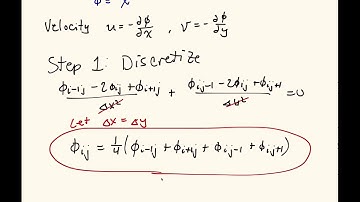 φ = x
Velocity u = -∂φ/∂x , v = -∂φ/∂y
Step 1: Discretize
(φi-1j - 2φij + φi+1j)/Δx² + (φij-1 - 2φij + φij+1)/Δy² = 0
Let Δx = Δy
φij = 1/4(φi-1j + φi+1j + φij-1 + φij+1)